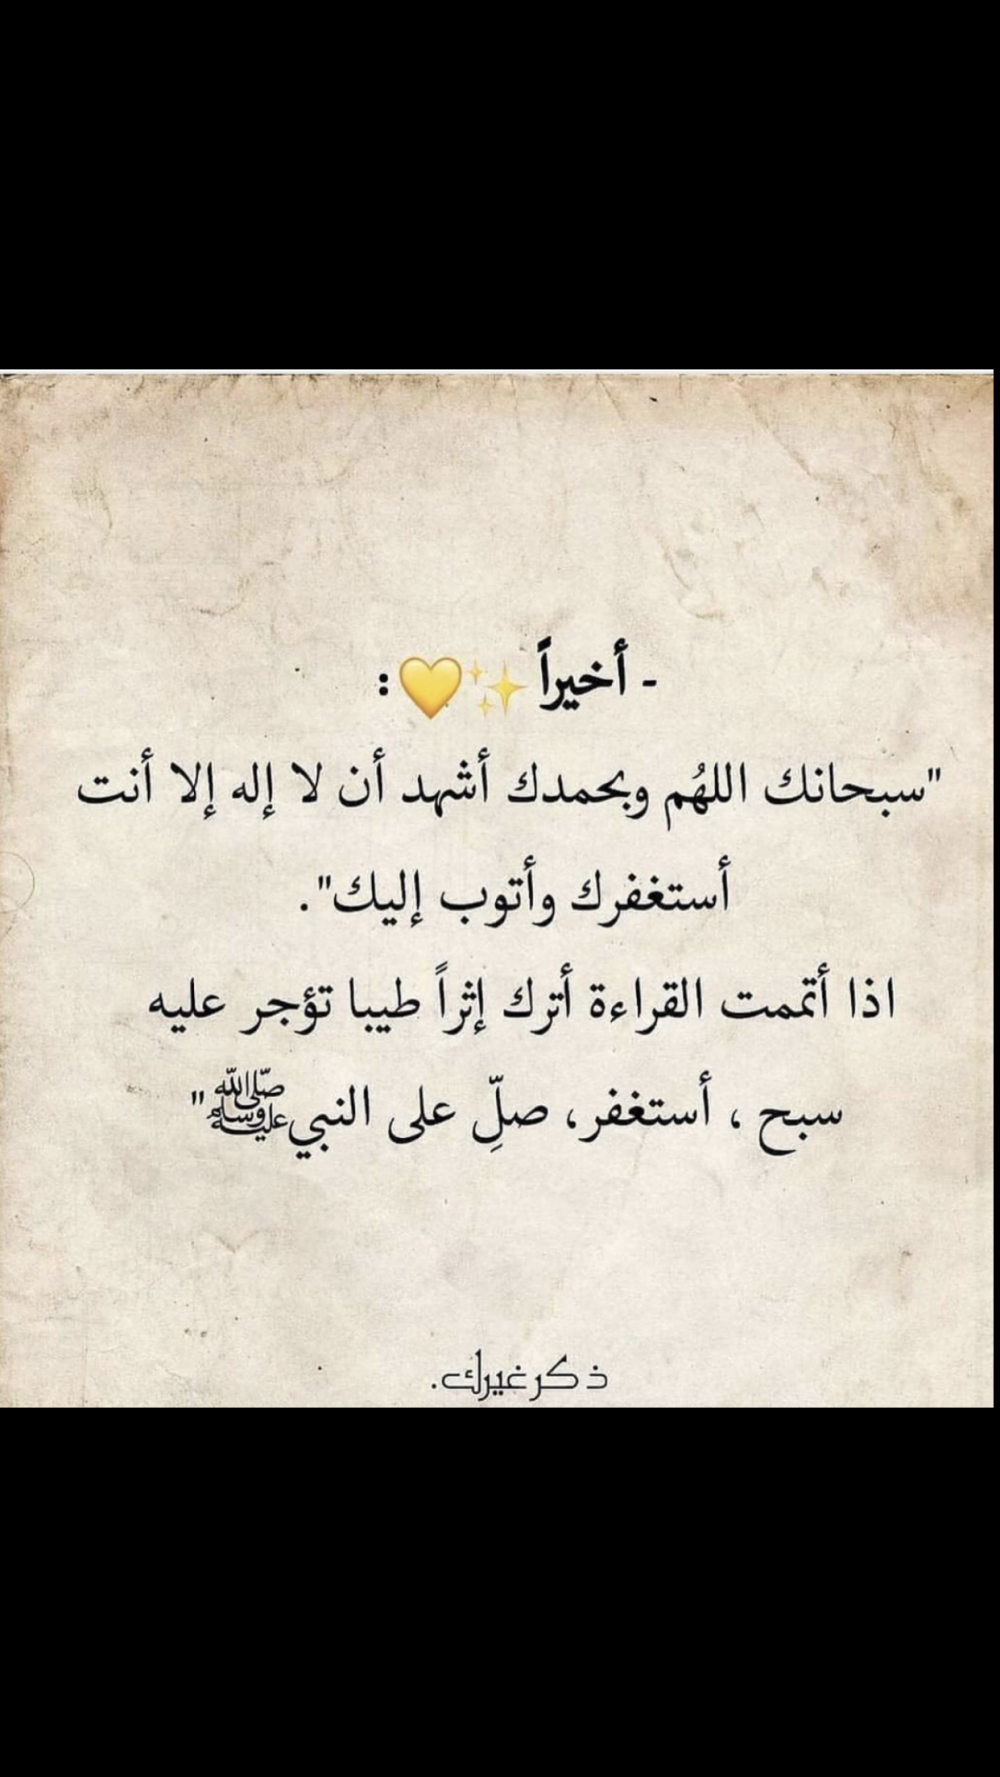 - أخيراً ✨💛 :
"سبحانك اللهُم وبحمدك أشهد أن لا إله إلا أنت
أستغفرك وأتوب إليك".
اذا أتممت القراءة أترك إثراً طيبا تؤجر عليه
سبح ، أستغفر، صلِّ على النبيﷺ"
ذكر غيرك.